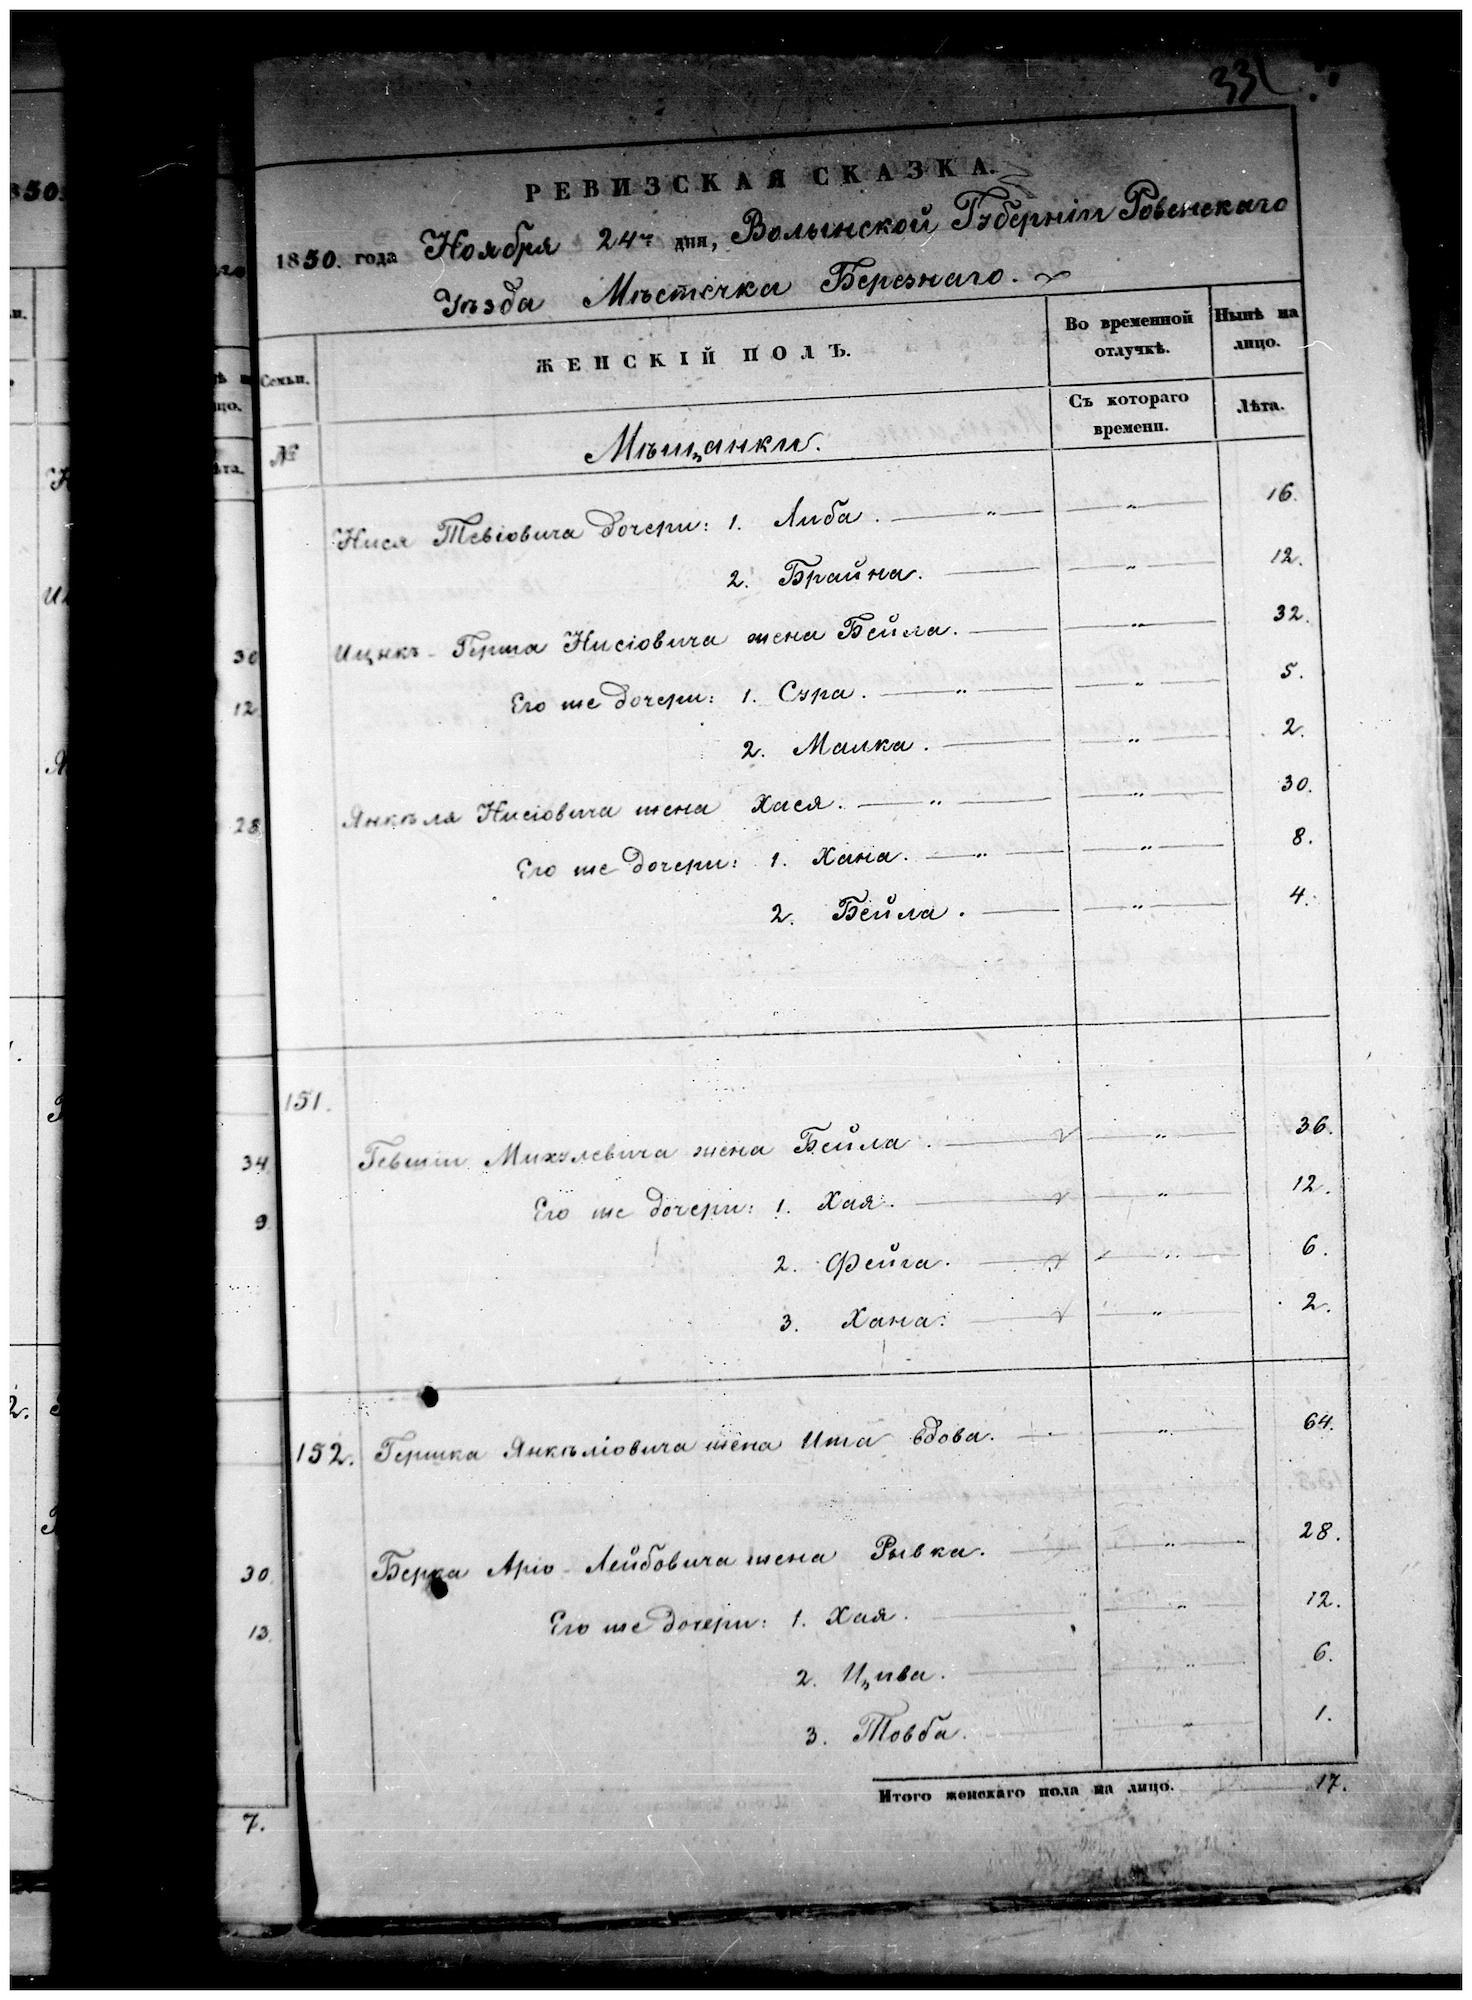 331
РЕВИЗСКАЯ СКАЗКА.
1850. года Ноября 24го дня, Волынской Губерніи Ровенскаго
Уѣзда Мѣстечка Березнаго.
Семьи. ЖЕНСКІЙ ПОЛЪ. Во временной отлучкѣ. Нынѣ на лицо.
№ Мѣщанки. Съ котораго времени. Лѣта.
Нися Тевіовича дочери: 1. Либа. — „ — — „ — 16.
2. Брайна. — — „ — 12.
Ицнкъ-Герша Нисіовича жена Бейла. — — „ — 32.
Его же дочери: 1. Сура. — „ — — „ — 5.
2. Малка. — — „ — 2.
Янкѣля Нисіовича жена Хася. — „ — — „ — 30.
Его же дочери: 1. Хана. — „ — — „ — 8.
2. Бейла. — — „ — 4.
151.
Михелевича жена Бейла. — — „ — 36.
Его же дочери: 1. Хая. — — „ — 12.
2. Фейга. — — „ — 6.
3. Хана. — — „ — 2.
152. Гершка Янкѣліовича жена Ита вдова. — — „ — 64.
Берка Аріо-Лейбовича жена Рывка. — — „ — 28.
Его же дочери: 1. Хая. — — „ — 12.
2. Цива. — — „ — 6.
3. Товба. — — „ — 1.
Итого женскаго пола на лицо. 17.
850.
30
12
28
34
9
30
13
7.